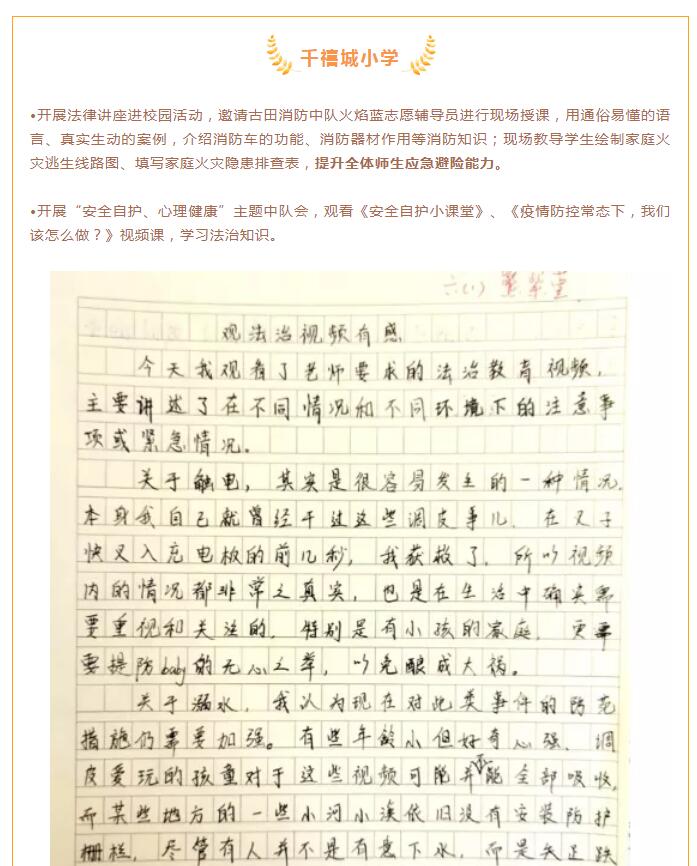 千禧城小学
•开展法律讲座进校园活动，邀请古田消防中队火焰蓝志愿辅导员进行现场授课，用通俗易懂的语
言、真实生动的案例，介绍消防车的功能、消防器材作用等消防知识；现场教导学生绘制家庭火
灾逃生线路图、填写家庭火灾隐患排查表，提升全体师生应急避险能力。
•开展“安全自护、心理健康”主题中队会，观看《安全自护小课堂》、《疫情防控常态下，我们
该怎么做？》视频课，学习法治知识。
六(1)
观法治视频有感
今天我观看了老师要求的法治教育视频，
主要讲述了在不同情况和不同环境下的注意事
项或紧急情况。
关于触电，其实是很容易发生的一种情况，
本身我自己就曾经干过这些调皮事儿，在叉子
快叉入充电板的前几秒，我获救了，所以视频
内的情况都非常之真实，也是在生活中确实需
要重视和关注的，特别是有小孩的家庭，更需
要提防baby的无心之举，以免酿成大祸。
关于溺水，我认为现在对此类事件的防范
措施仍需要加强。有些年龄小但好奇心强、调
皮爱玩的孩童对于这些视频可能并不能全部吸收，
而某些地方的一些小河小溪依旧没有安装防护
栅栏，尽管有人并不是有意下水，而是失足跌